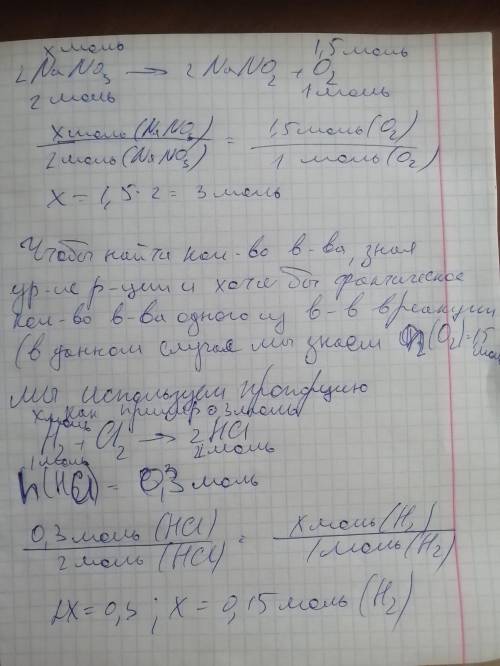 x моль 1,5 моль
2NaNO₃ → 2NaNO₂ + O₂
2 моль 1 моль
x моль (NaNO₃) / 2 моль (NaNO₃) = 1,5 моль (O₂) / 1 моль (O₂)
x = 1,5 · 2 = 3 моль
Чтобы найти кол-во в-ва, зная
ур-ие р-ции и хотя бы фактическое
кол-во в-ва одного из в-в в реакции
(в данном случае мы знаем n(O₂)=1,5 моль
мы используем пропорцию
как пример
x моль 0,3 моль
H₂ + Cl₂ → 2HCl
1 моль 2 моль
n(HCl) = 0,3 моль
0,3 моль (HCl) / 2 моль (HCl) = x моль (H₂) / 1 моль (H₂)
2x = 0,3 ; x = 0,15 моль (H₂)